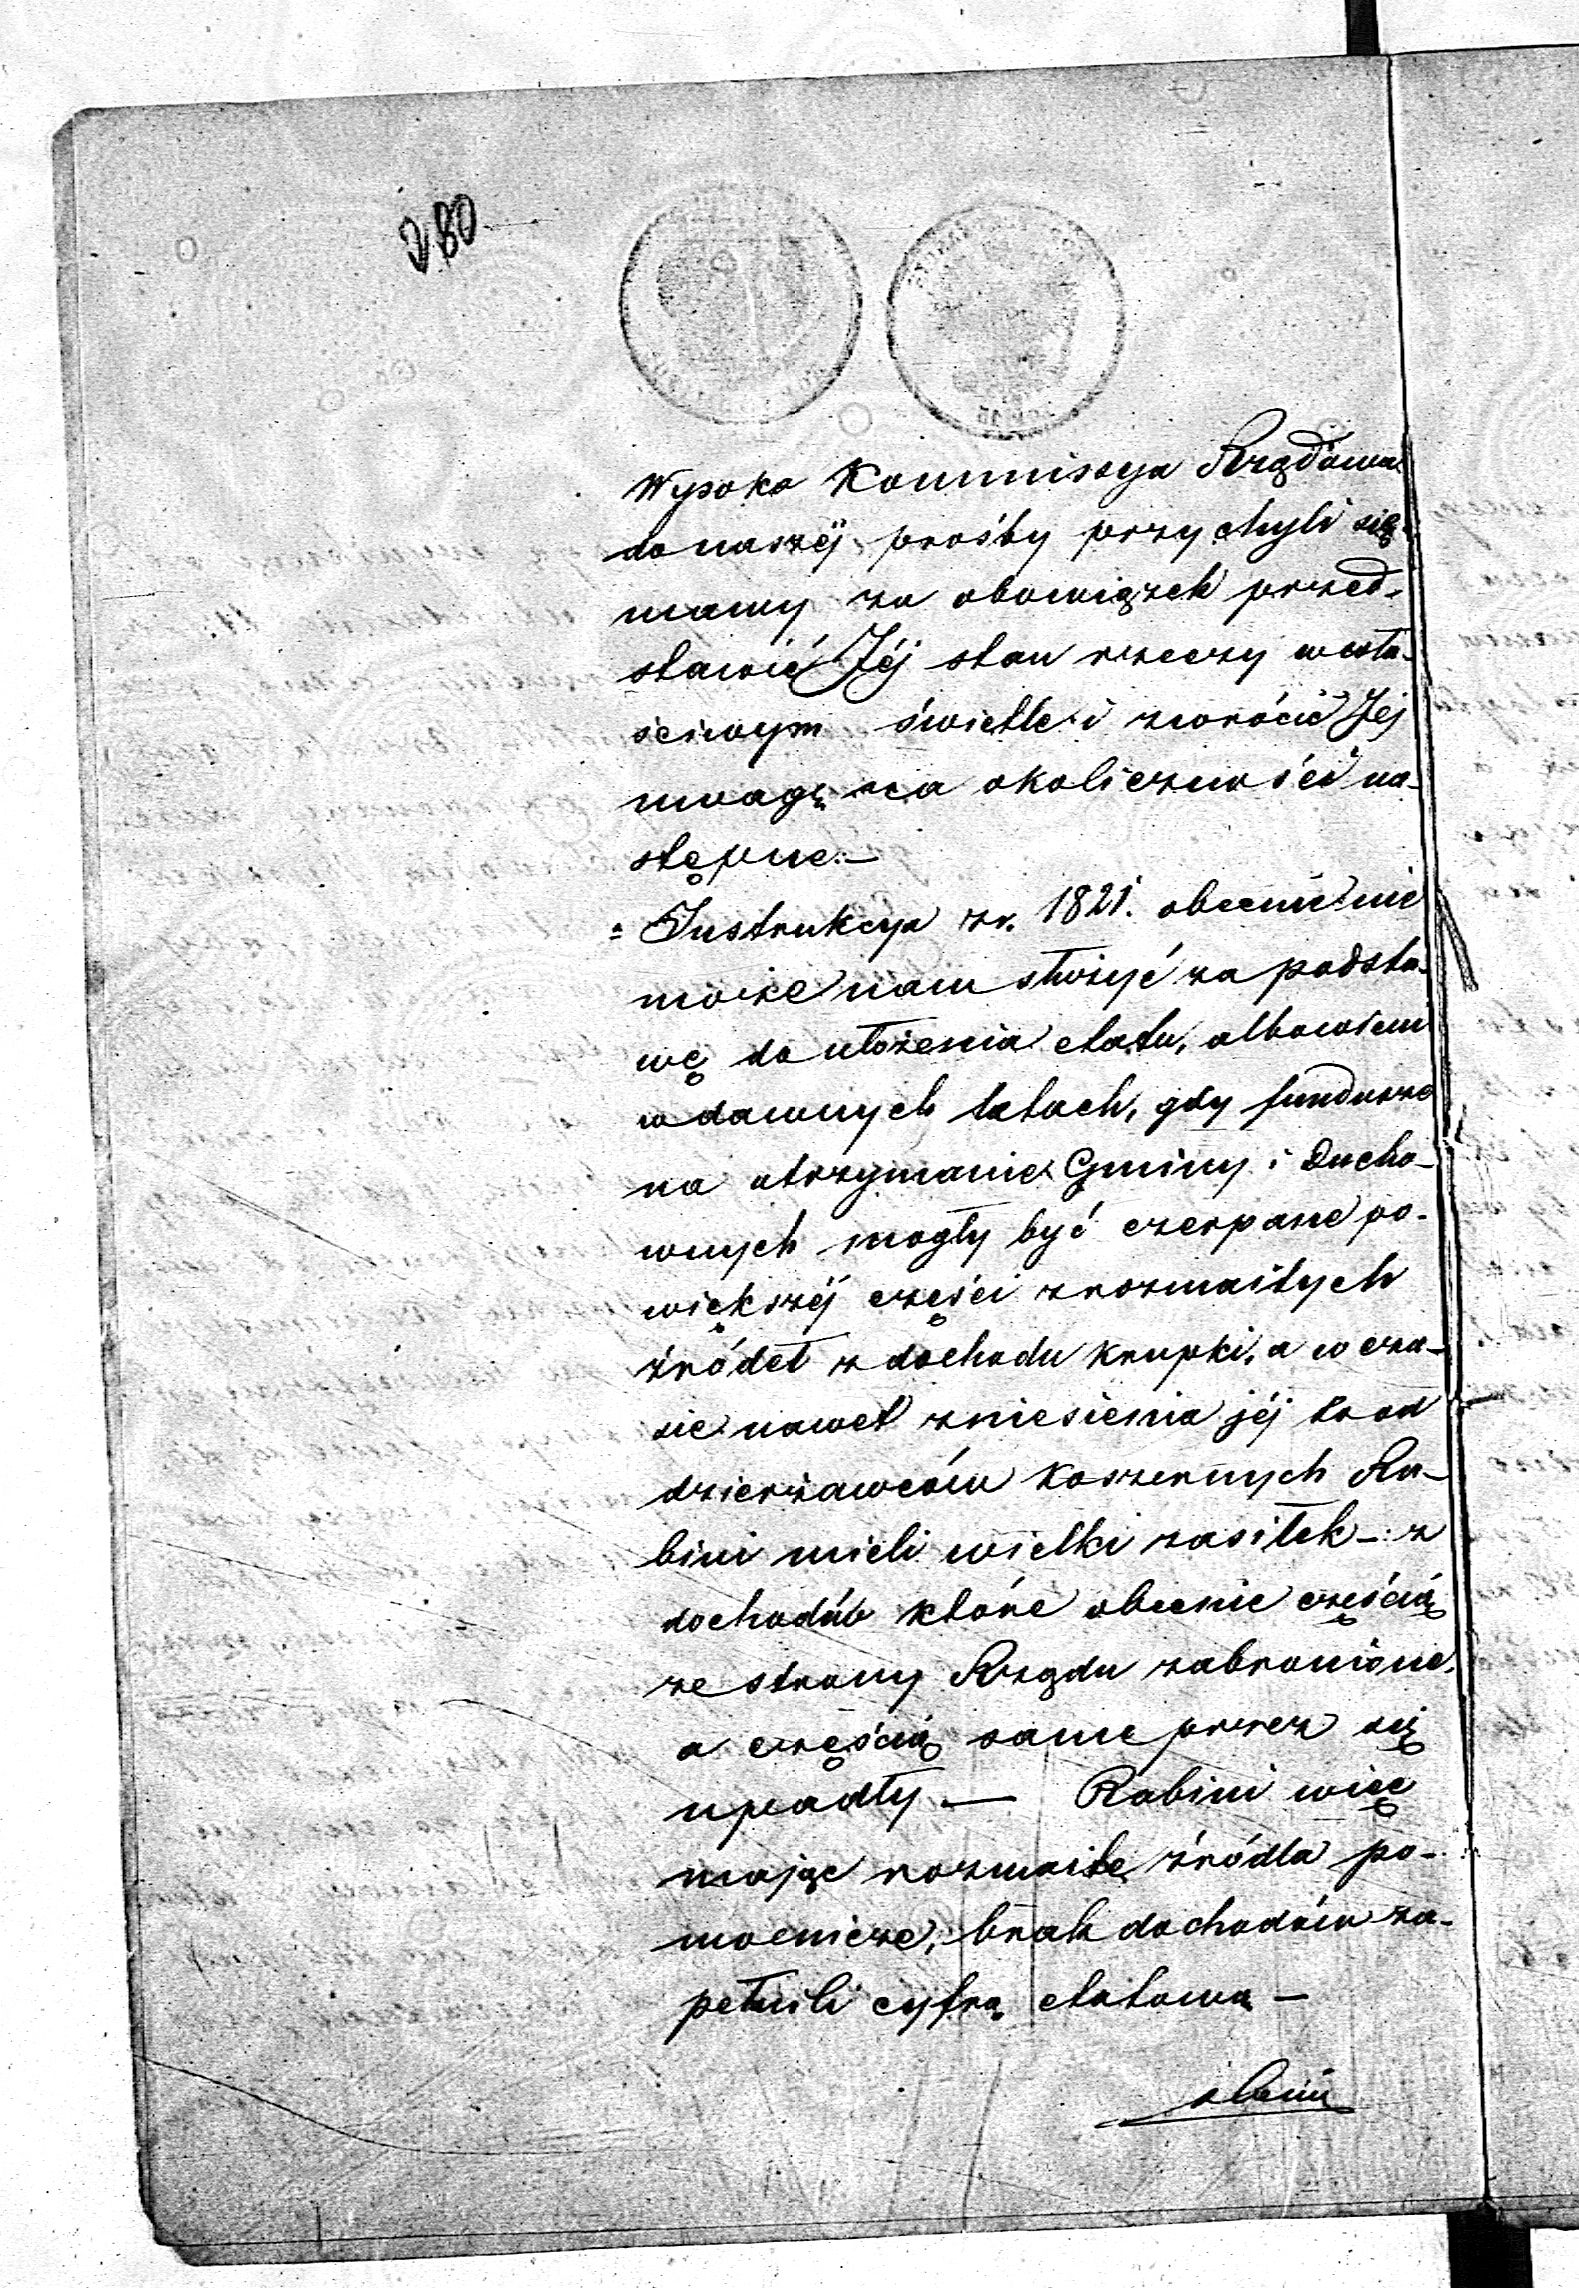 280
Wysoka Kommissya Rządowa
do naszéj prośby przychyli się
mamy za obowiązek przed-
stawić Jéj stan rzeczy w wła-
ściwym świetle i zwrócić Jéj
uwagę na okoliczności na-
stępne.—
Instrukcya z r. 1821. obecnie nie
może nam służyć za podsta-
wę do ułożenia etatu, albowiem
w dawnych latach, gdy fundusze
na utrzymanie Gminy i Ducho-
wnych mogły być czerpane po-
większéj części z rozmaitych
źródeł z dochodu krupki, a w cza-
sie nawet zniesienia jéj to od
dzierżawców koszernych Ra-
bini mieli wielki zasiłek — z
dochodów które obecnie częścią
ze strony Rządu zabronione,
a częścią same przez się
upadły — Rabini więc
mając rozmaite źródła po-
mocnicze, brak dochodów za-
pełnili cyfrą etatową —
obecni